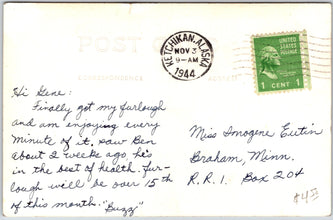 POST CARD
CORRESPONDENCE
ADDRESS
KETCHIKAN, ALASKA
NOV 3
9-AM
1944
UNITED STATES POSTAGE
1 CENT 1
Hi Gene:
Finally got my furlough
and am enjoying every
minute of it. Saw Ben
about 2 weeks ago, he's
in the best of health. Fur-
lough will be over 15th
of this month. "Buzz"
Miss Imogene Eutin
Braham, Minn.
R.R.1. Box 204